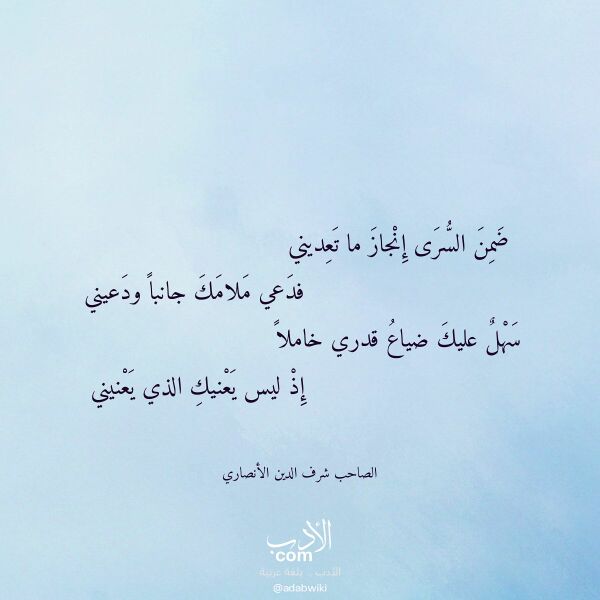 ضَمِنَ السُّرَى إِنْجازَ ما تَعِديني
فدَعي مَلامَكَ جانباً ودَعيني
سَهْلٌ عليكَ ضياعُ قدري خاملاً
إِذْ ليس يَعْنيكِ الذي يَعْنيني
الصاحب شرف الدين الأنصاري
الأدب
com
الأدب .. بلغة عربية
@adabwiki